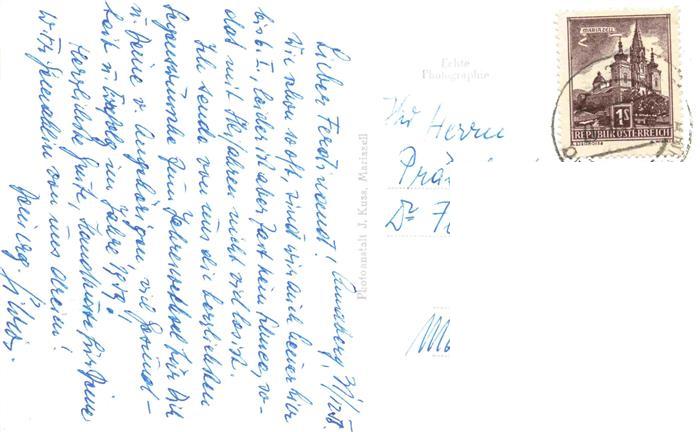 Lieber Ferdinand! Annaberg, 31/12 58.
Wie schon so oft, sind wir auch heuer hier
bis 6. I., leider ist aber fast kein Schnee, so-
daß mit Skifahren nicht viel los ist.
Ich sende von uns die herzlichsten
Segenswünsche zum Jahreswechsel für Dich
u. Deine v. Angehörigen viel Gesund-
heit u. Erfolg im Jahre 1959!
Herzlichste Grüße, Handküsse für Deine
Frau Gemahlin von uns dreien!
Dein erg.
Echte
Photographie
Photoanstalt J. Kuss, Mariazell
MARIAZELL
1S
REPUBLIK ÖSTERREICH
Herrn
Prä
Dr F